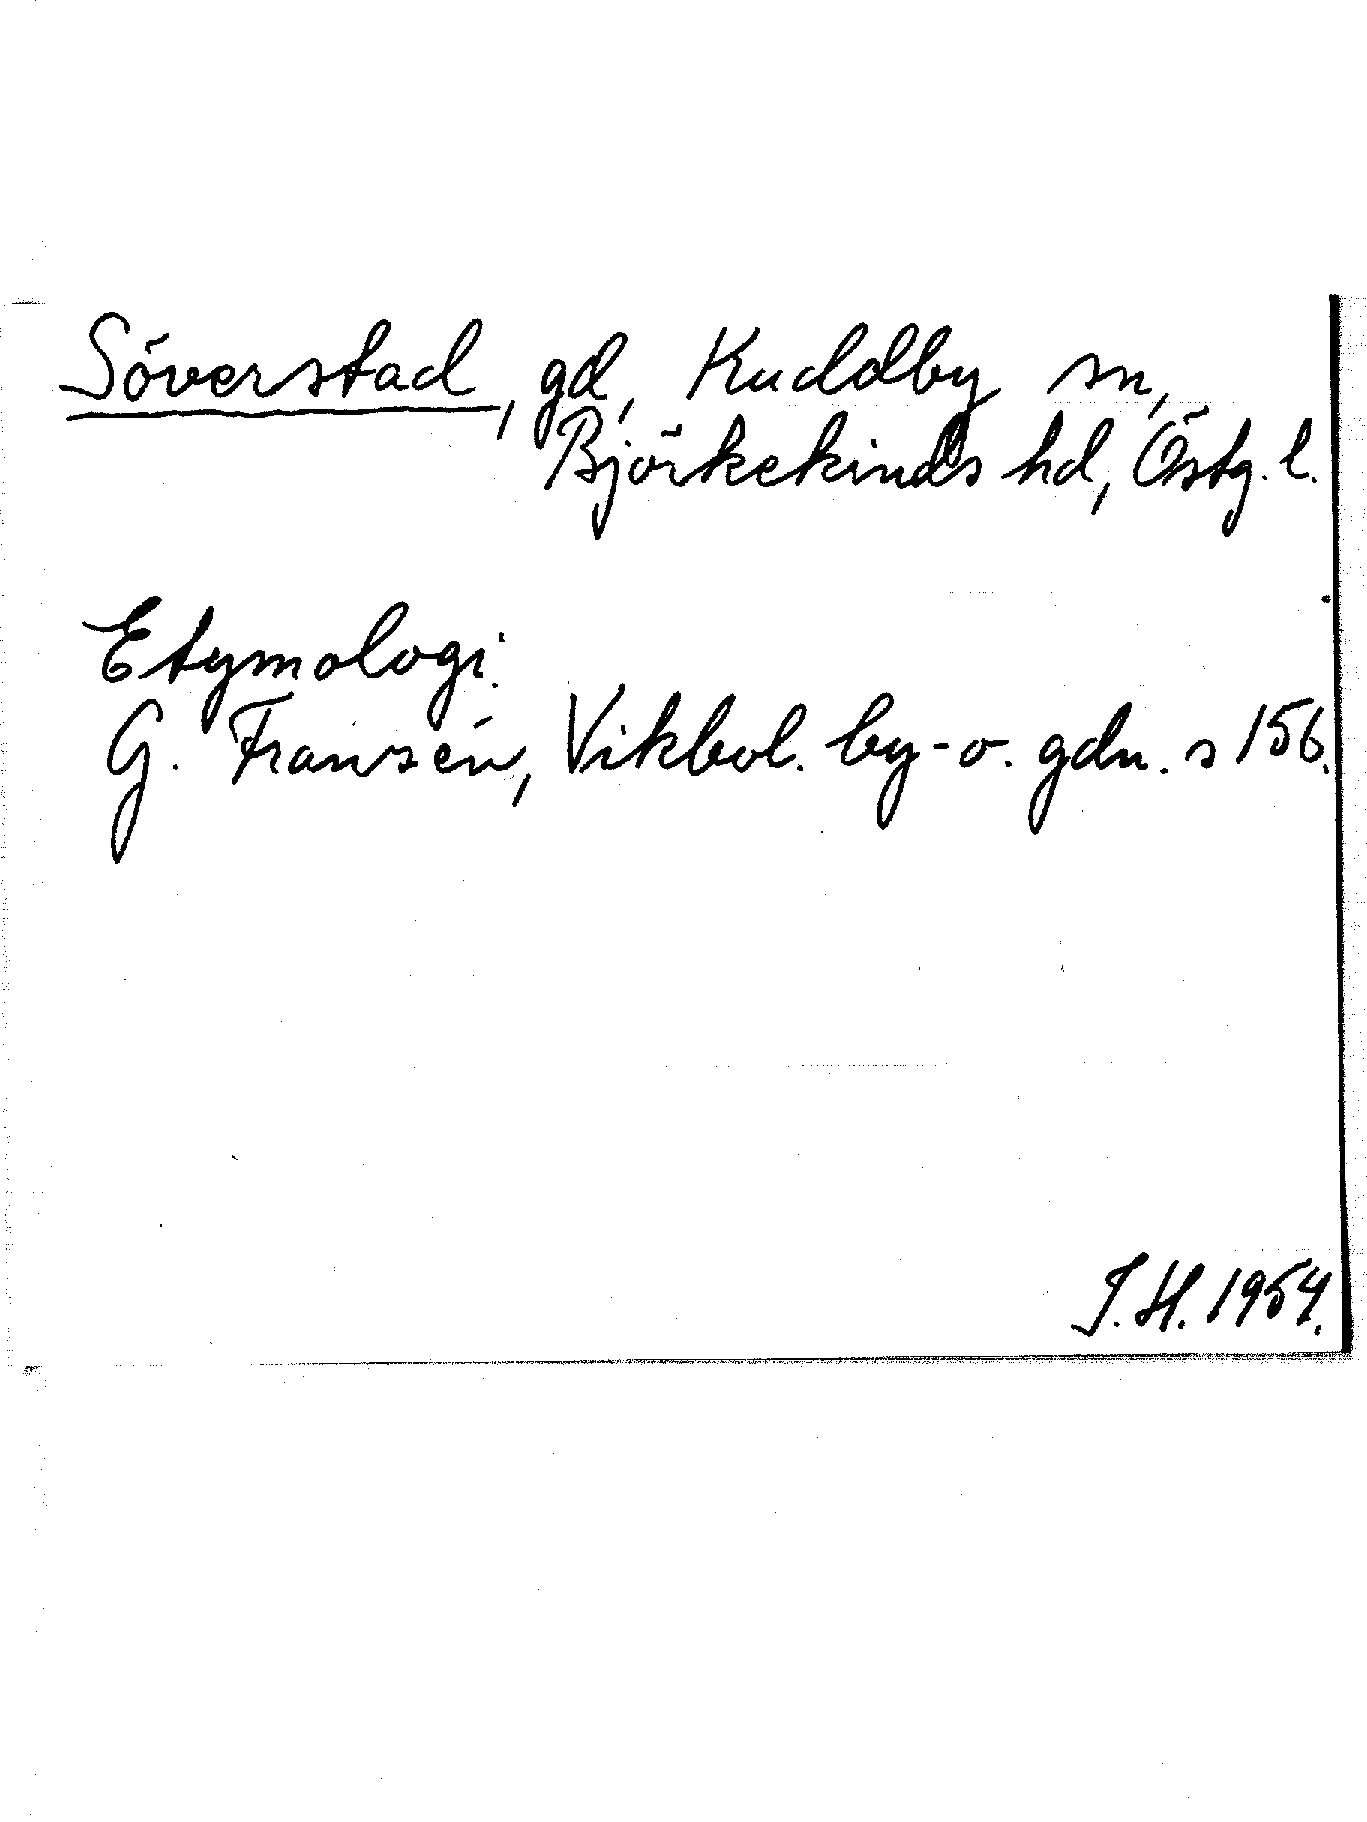 Söverstad, gd, Kuddby sn,
Björkekinds hd, Östg. l.
Etymologi.
G. Fransén, Vikbol. by- o. gdn. s 156.
I. H. 1954.